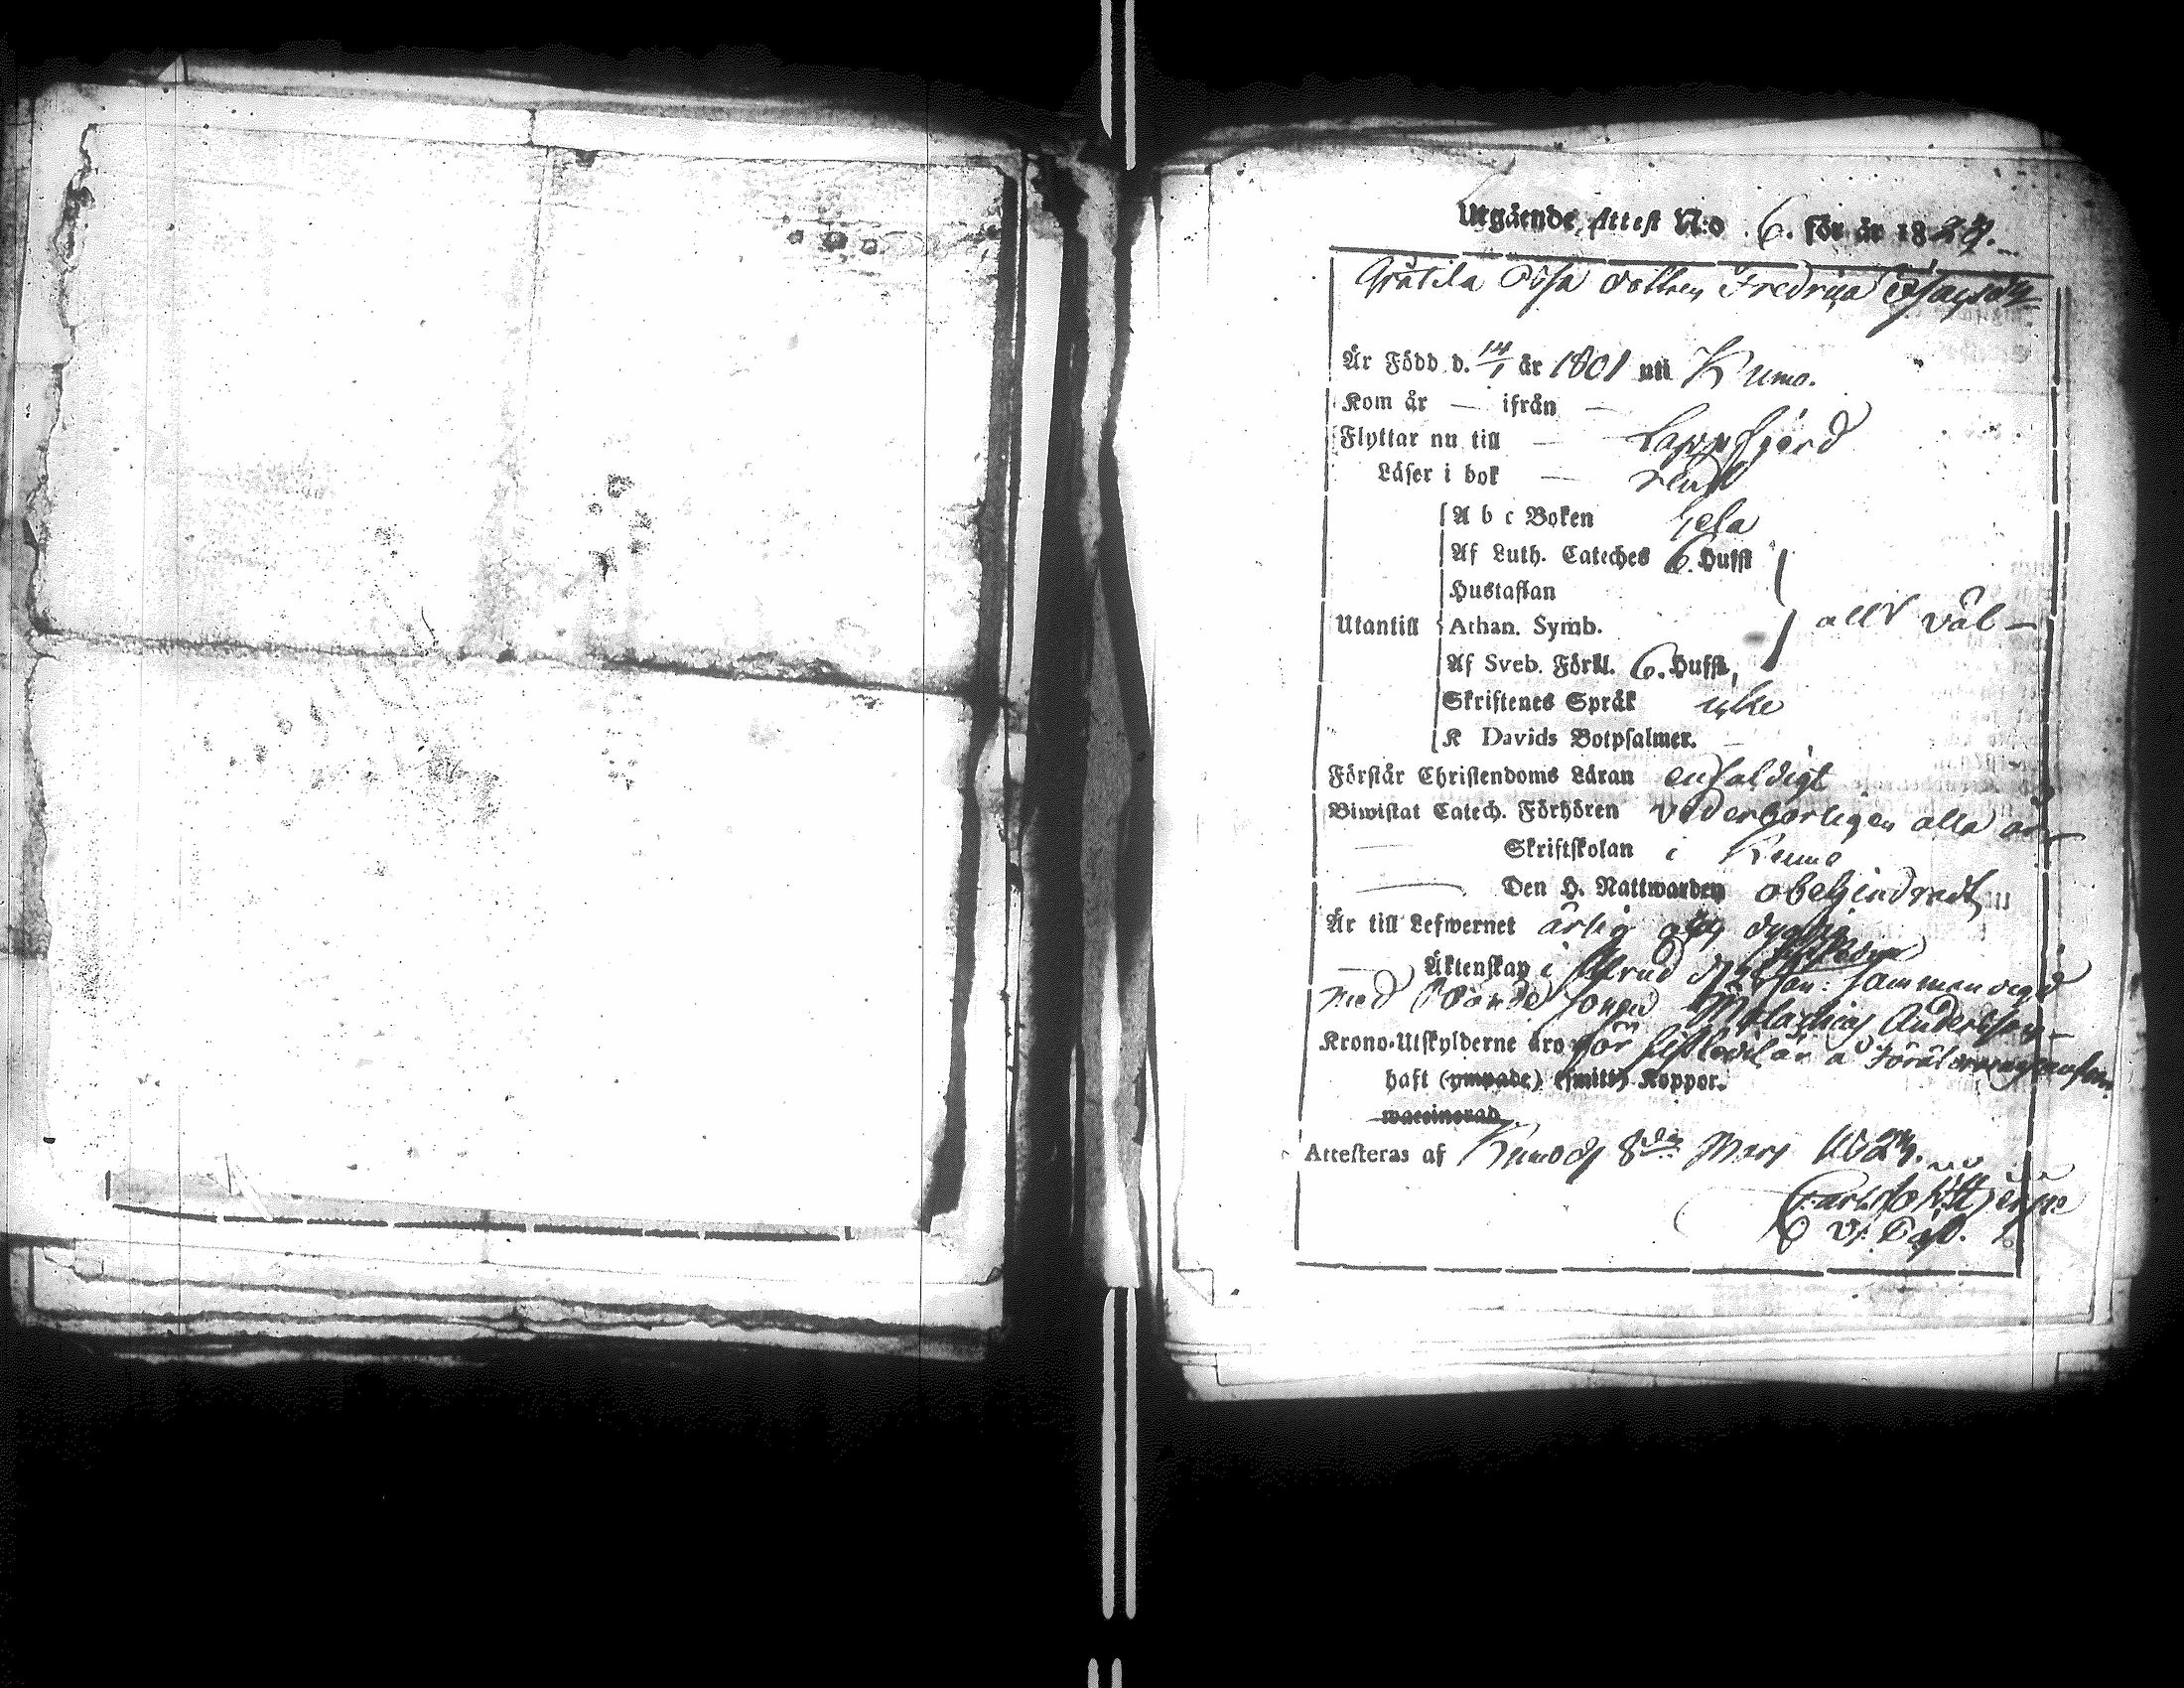 Utgående Attest N:o 6. för år 182
Fredrica
Är Född d. 14/1 år 1801 uti Kumo.
Kom år — ifrån —
Flyttar nu till — Lappfjerd
Läser i bok —
A b c Boken hela
Af Luth. Cateches 6. Hufst
Hustaflan
Utantill Athan. Symb. allt väl —
Af Sveb. Förkl. 6. Hufst,
Skriftenes Språk icke
K Davids Botpsalmer.
Förstår Christendoms Läran enfaldigt
Biwistat Catech. Förhören vederbörligen alla år
— Skriftskolan i Kumo
— Den H. Nattwarden obehindradt
Är till Lefwernet ärlig och dygdig
— Äktenskap i sammanvigd
med Bonde sonen Andersson —
Krono-Utskylderne äro för
haft (ympade) (smitt) Koppor.
waccinerad
Attesteras af Kumo d. 8de Mars